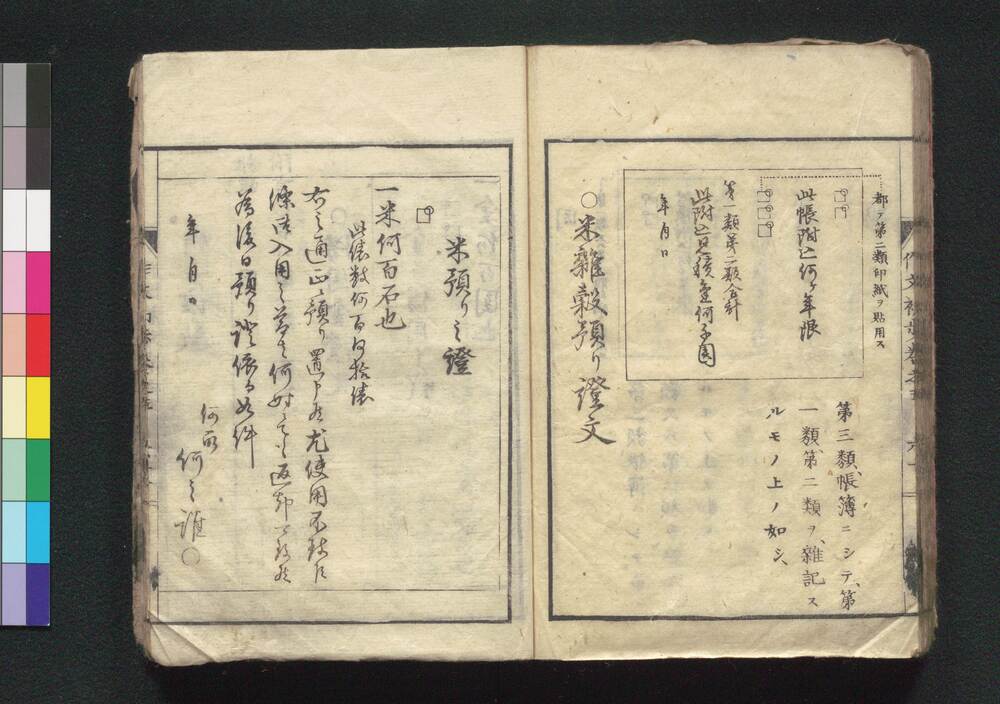 都テ第二類印紙ヲ貼用ス
此帳附込何ヶ年限
第一類第二類合計
此附込見積金何千圓
年月日
第三類帳簿ニシテ、第
一類、第二類ヲ、雜記ス
ルモノ上ノ如シ、
○米雜穀預り證文
米預り之證
一米何百石也
此俵数何百何拾俵
右之通正ニ預り置申候尤使用不致候
御入用之節者何時ニても返却可致候
為後日預り證依而如件
年月日
何所
何之誰○